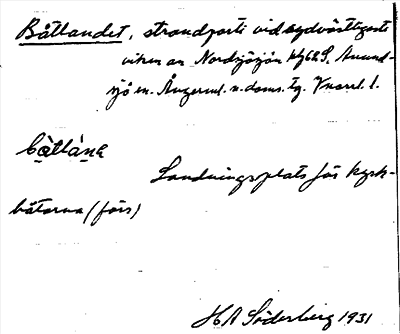 Båtlandet, strandparti vid sydvästligaste
viken av Nordsjösjön Anund-
sjö sn. Ångerml. n. doms. tg. V norrl. l.
båtlána
Landningsplats för kyrk-
båtarna (förr)
H A Söderberg 1931